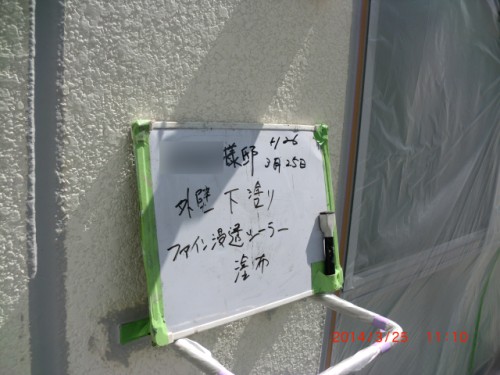 H26
様邸 3月25日
外壁 下塗り
ファイン浸透シーラー
塗布
2014/3/25 11:10